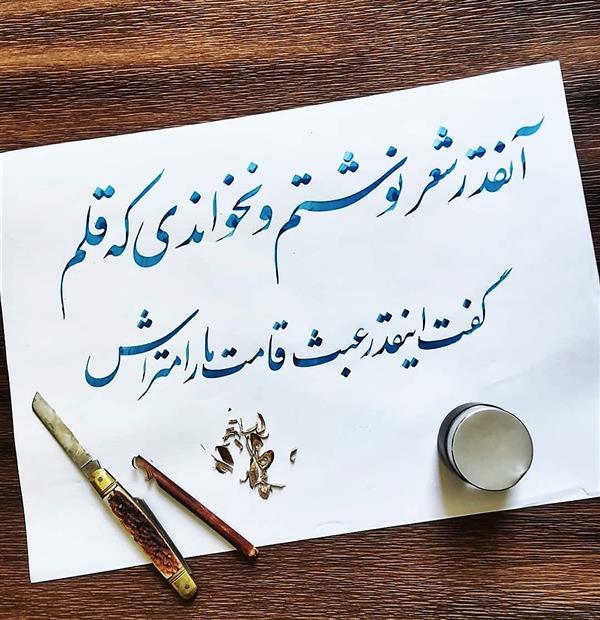 آنقدر شعر نوشتم و نخواندی که قلم
گفت اینقدر عبث قامت ما را متراش